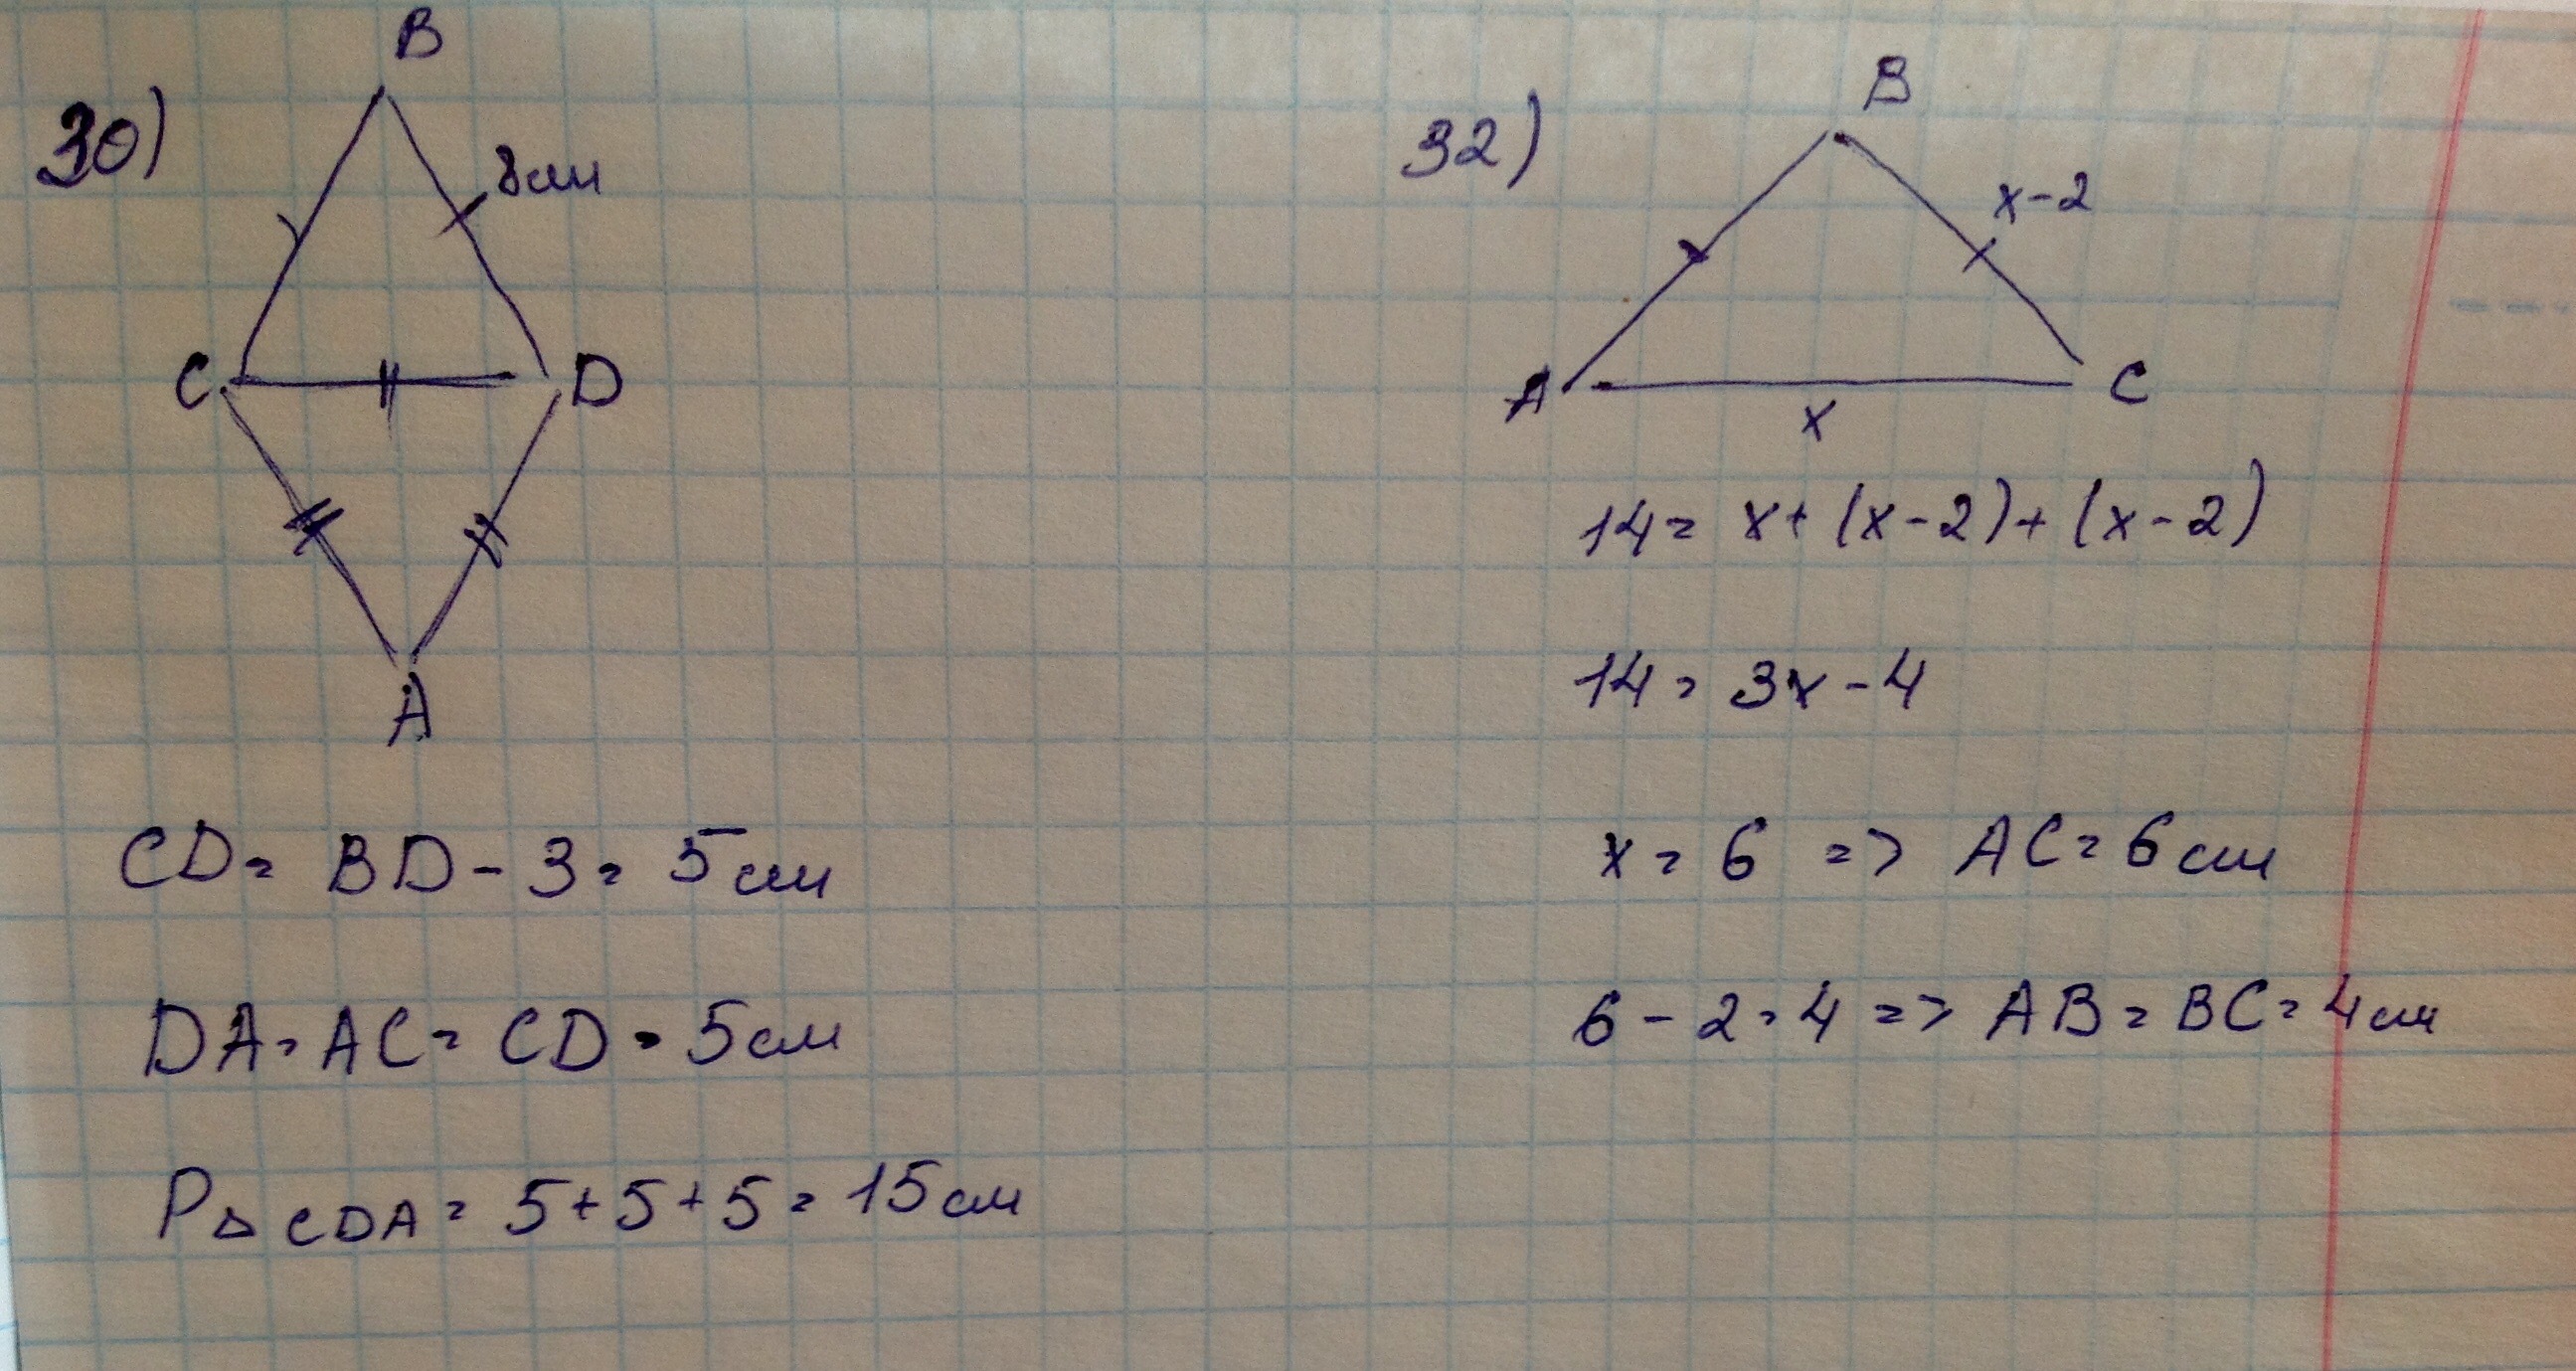 30)
B
8см
C
D
A
CD = BD - 3 = 5 см
DA = AC = CD = 5 см
P△CDA = 5 + 5 + 5 = 15 см
32)
B
x - 2
A
C
x
14 = x + (x - 2) + (x - 2)
14 = 3x - 4
x = 6 => AC = 6 см
6 - 2 = 4 => AB = BC = 4 см